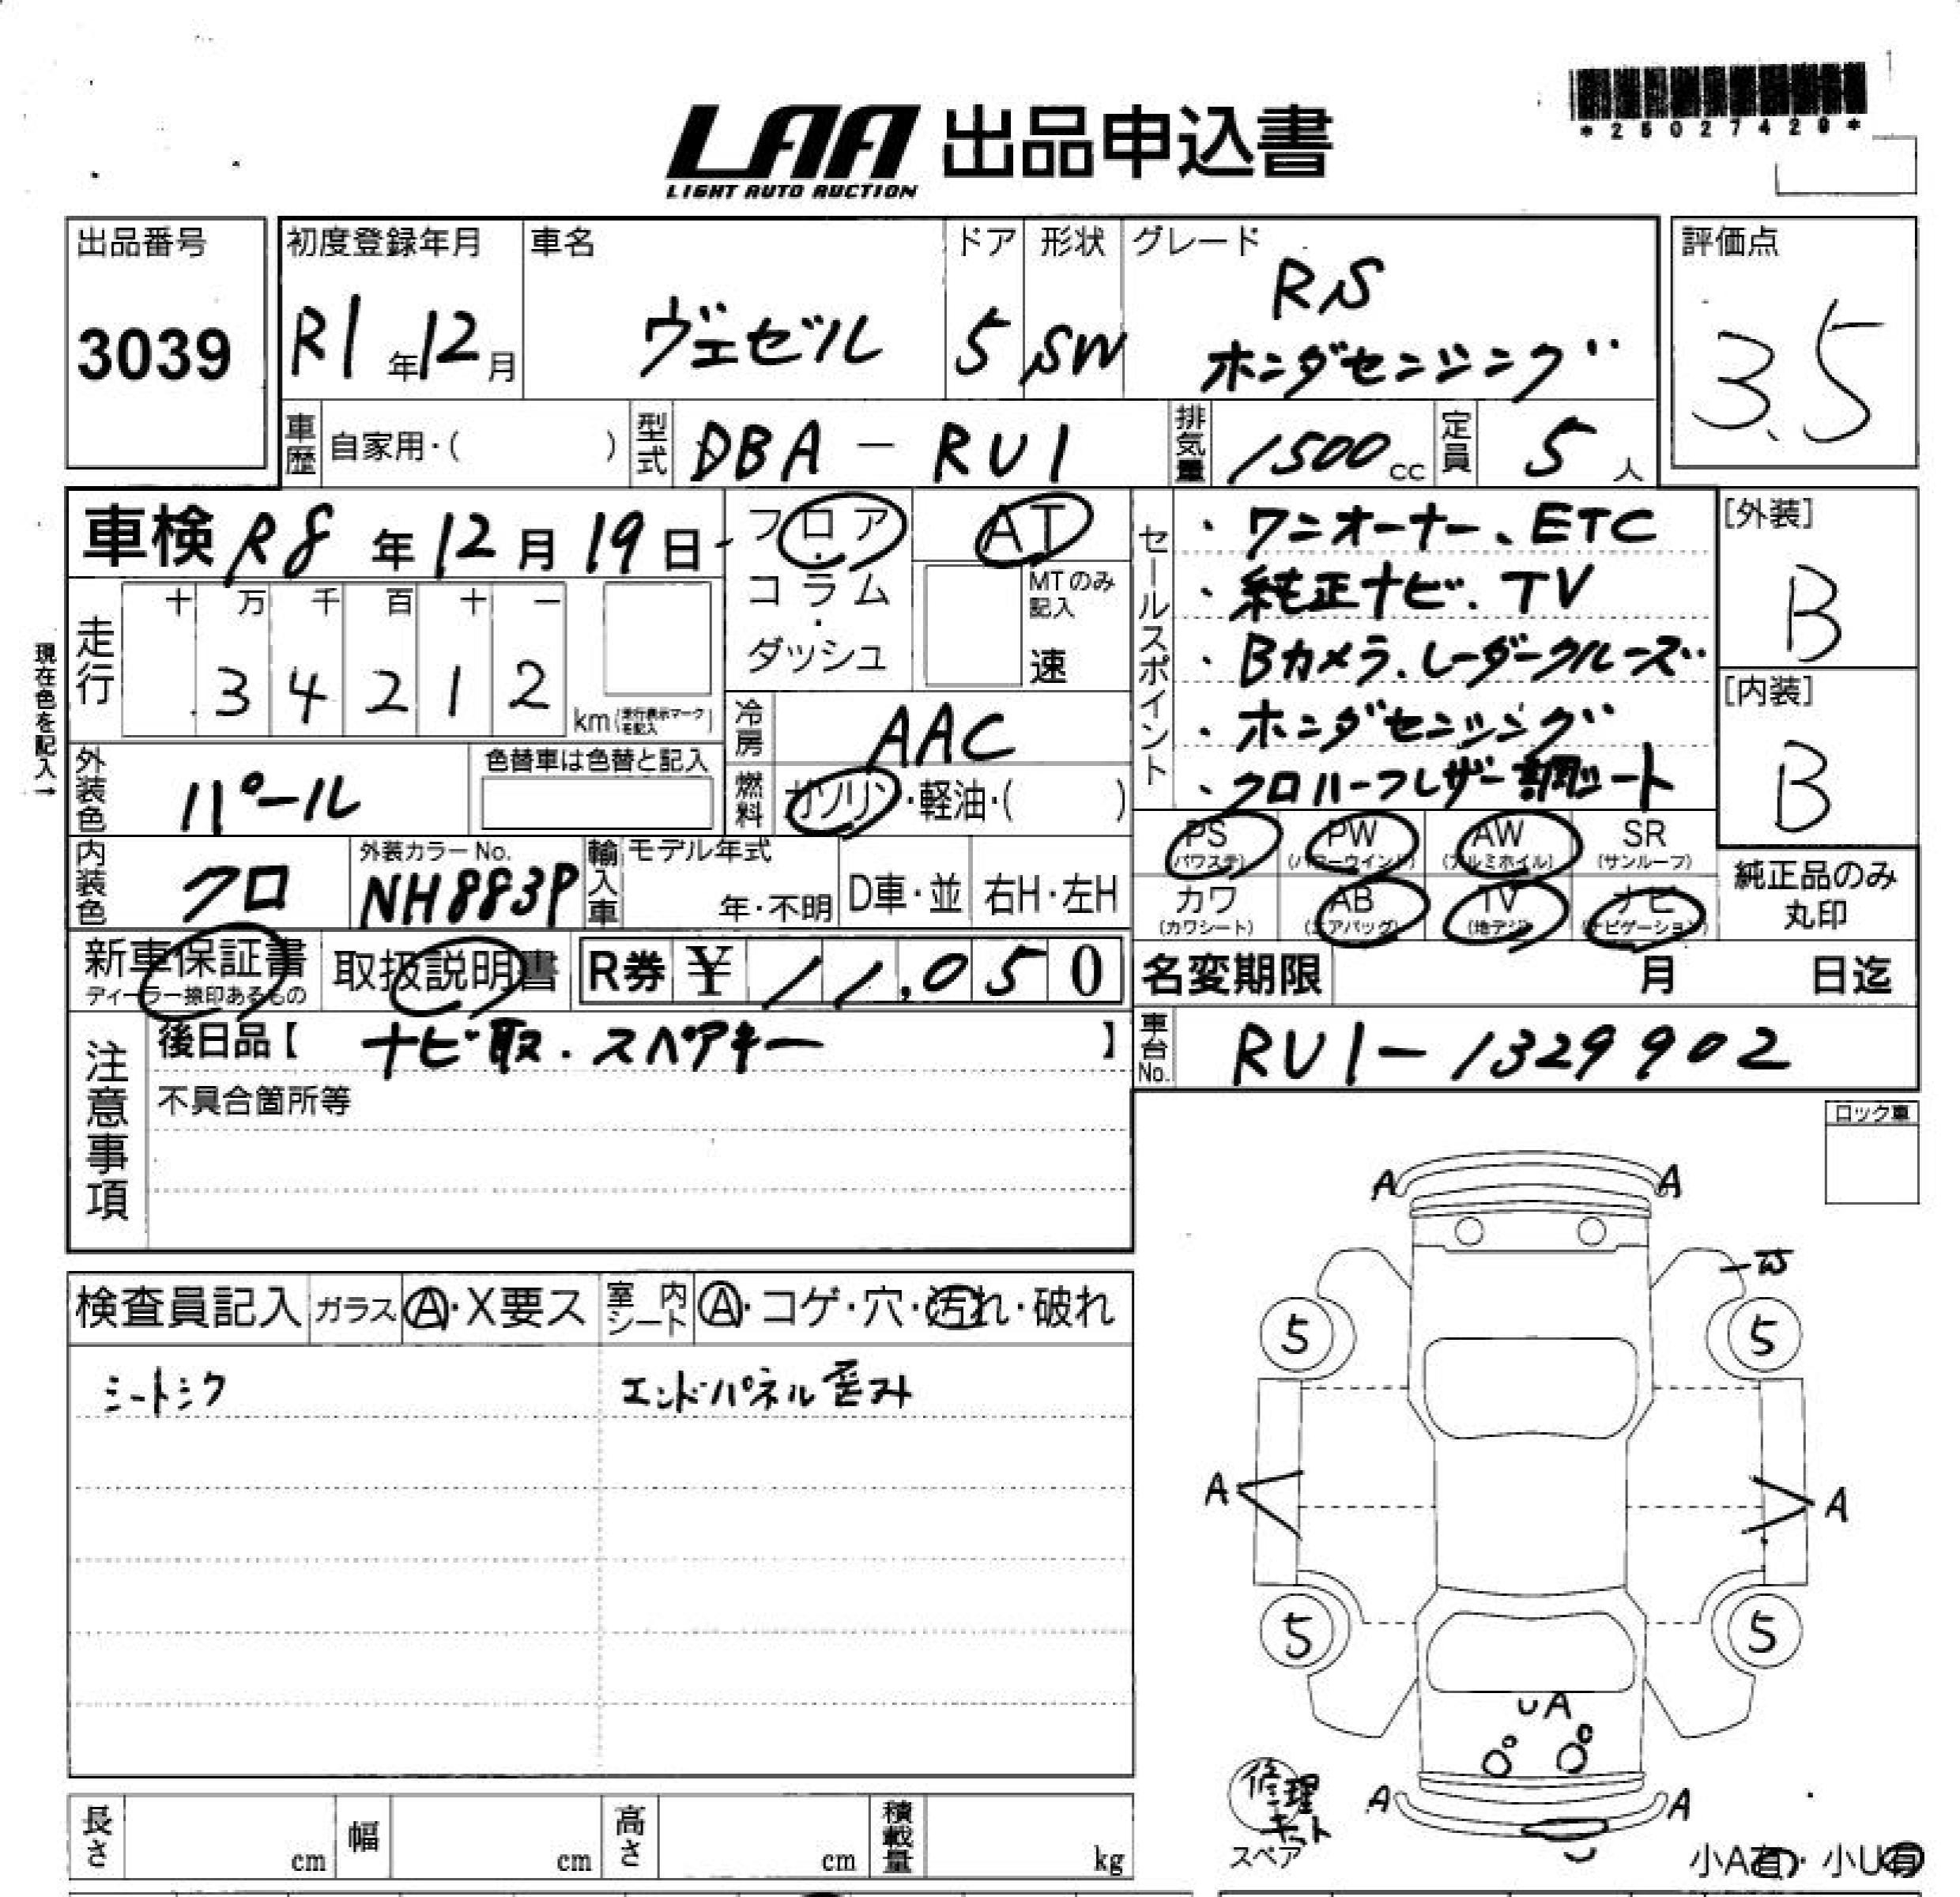 *25027420*
LAA 出品申込書
LIGHT AUTO AUCTION
出品番号
3039
初度登録年月
R1年12月
車名
ヴェゼル
ドア
5
形状
SW
グレード
RS
ホンダセンシング
評価点
3.5
車歴 自家用・( )
型式 DBA-RU1
排気量 1500cc
定員 5人
車検 R8年12月19日
フロア・
コラム・
ダッシュ
AT
MTのみ
記入
速
セールスポイント
・ワンオーナー、ETC
・純正ナビ、TV
・Bカメラ、レーダークルーズ
・ホンダセンシング
・クロハーフレザー調シート
[外装]
B
[内装]
B
現在色を記入→
走行
十 万 千 百 十 一
3 4 2 1 2
km(走行表示マークを記入)
冷房 AAC
燃料 ガソリン・軽油・( )
外装色 パール
色替車は色替と記入
内装色 クロ
外装カラーNo.
NH883P
輸入車
モデル年式
年・不明
D車・並
右H・左H
PS
(パワステ)
PW
(パワーウインド)
AW
(アルミホイル)
SR
(サンルーフ)
カワ
(カワシート)
AB
(エアバッグ)
TV
(地デジ)
ナビ
(ナビゲーション)
純正品のみ
丸印
新車保証書
ディーラー捺印あるもの
取扱説明書
R券 ¥11,050
名変期限 月 日迄
注意事項
後日品【 ナビ取・スペアキー 】
不具合箇所等
車台No. RU1-1329902
ロック車
検査員記入 ガラス A・X要ス 室内シート A・コゲ・穴・汚れ・破れ
シートシク
エンドパネル
A A
5 5
A A
5 5
UA
A A
修理キット
スペア
小A有・小U有
長さ cm
幅 cm
高さ cm
積載量 kg